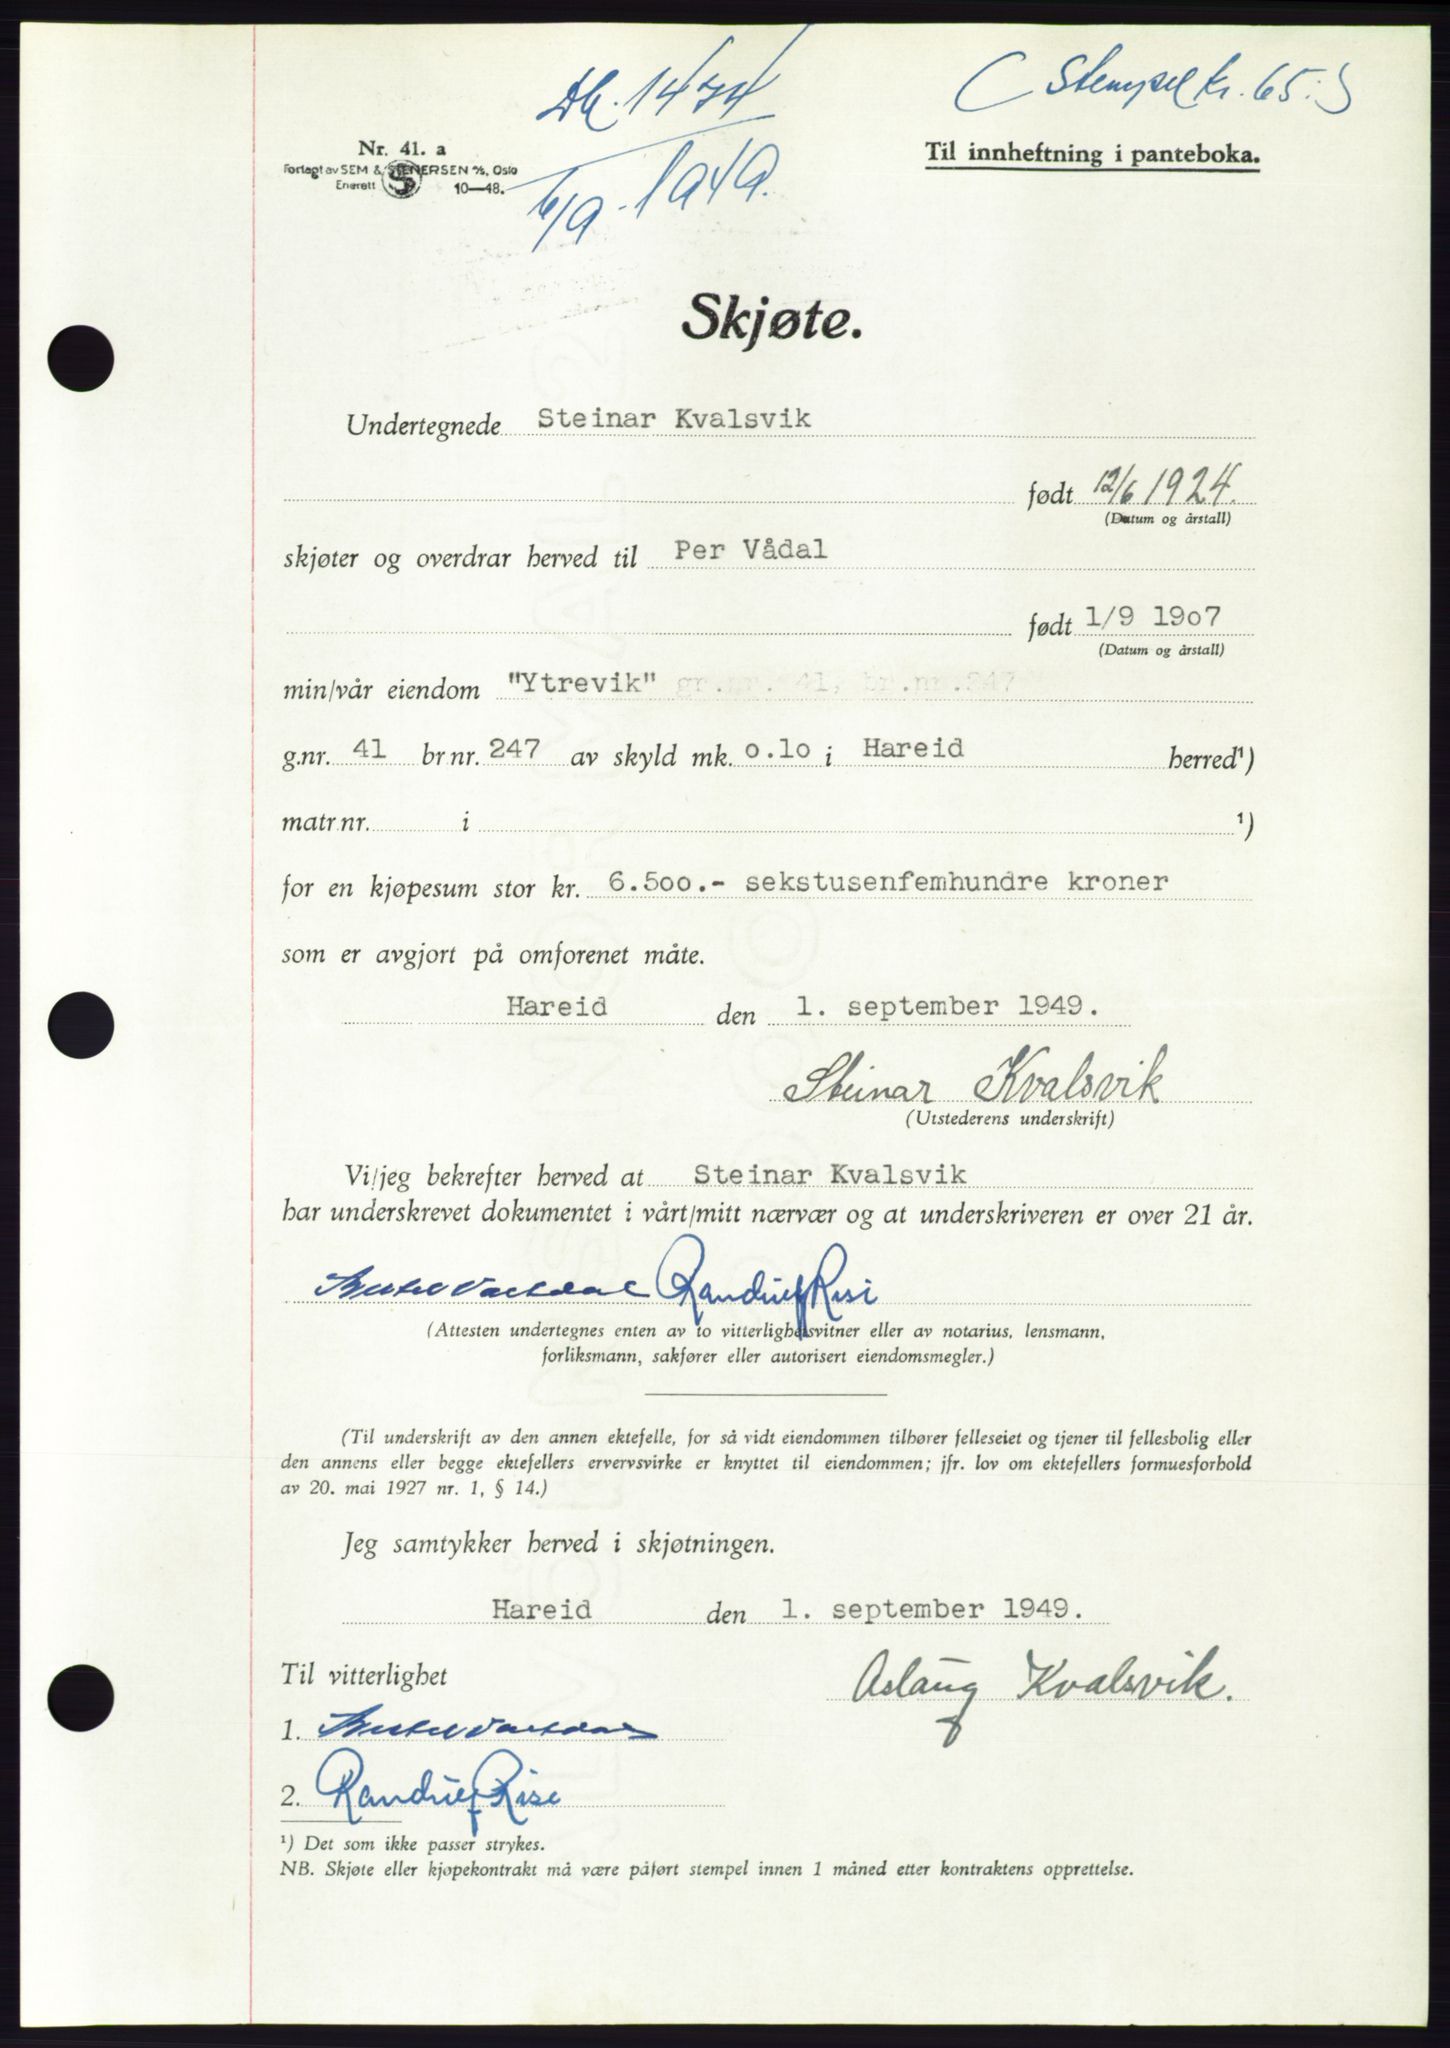 Db. 1474
6/9-1949.
( Stempel kr. 65.-)
Nr. 41. a
Forlagt av SEM & STENERSEN A/S, Oslo
Enerett 10—48.
Til innheftning i panteboka.
Skjøte.
Undertegnede Steinar Kvalsvik
født 12/6 1924.
(Datum og årstall)
skjøter og overdrar herved til Per Vådal
født 1/9 19o7
(Datum og årstall)
min/vår eiendom "Ytrevik" gr.nr. 41, br.nr.247
g.nr. 41 br.nr. 247 av skyld mk. o.lo i Hareid herred¹)
matr.nr. i ¹)
for en kjøpesum stor kr. 6.5oo.- sekstusenfemhundre kroner
som er avgjort på omforenet måte.
Hareid den 1. september 1949.
Steinar Kvalsvik
(Utstederens underskrift)
Vi/jeg bekrefter herved at Steinar Kvalsvik
har underskrevet dokumentet i vårt/mitt nærvær og at underskriveren er over 21 år.
Randi Rise
(Attesten undertegnes enten av to vitterlighetsvitner eller av notarius, lensmann,
forliksmann, sakfører eller autorisert eiendomsmegler.)
(Til underskrift av den annen ektefelle, for så vidt eiendommen tilhører felleseiet og tjener til fellesbolig eller
den annens eller begge ektefellers ervervsvirke er knyttet til eiendommen; jfr. lov om ektefellers formuesforhold
av 20. mai 1927 nr. 1, § 14.)
Jeg samtykker herved i skjøtningen.
Hareid den 1. september 1949.
Til vitterlighet
Aslaug Kvalsvik.
1.
2. Rise
¹) Det som ikke passer strykes.
NB. Skjøte eller kjøpekontrakt må være påført stempel innen 1 måned etter kontraktens opprettelse.